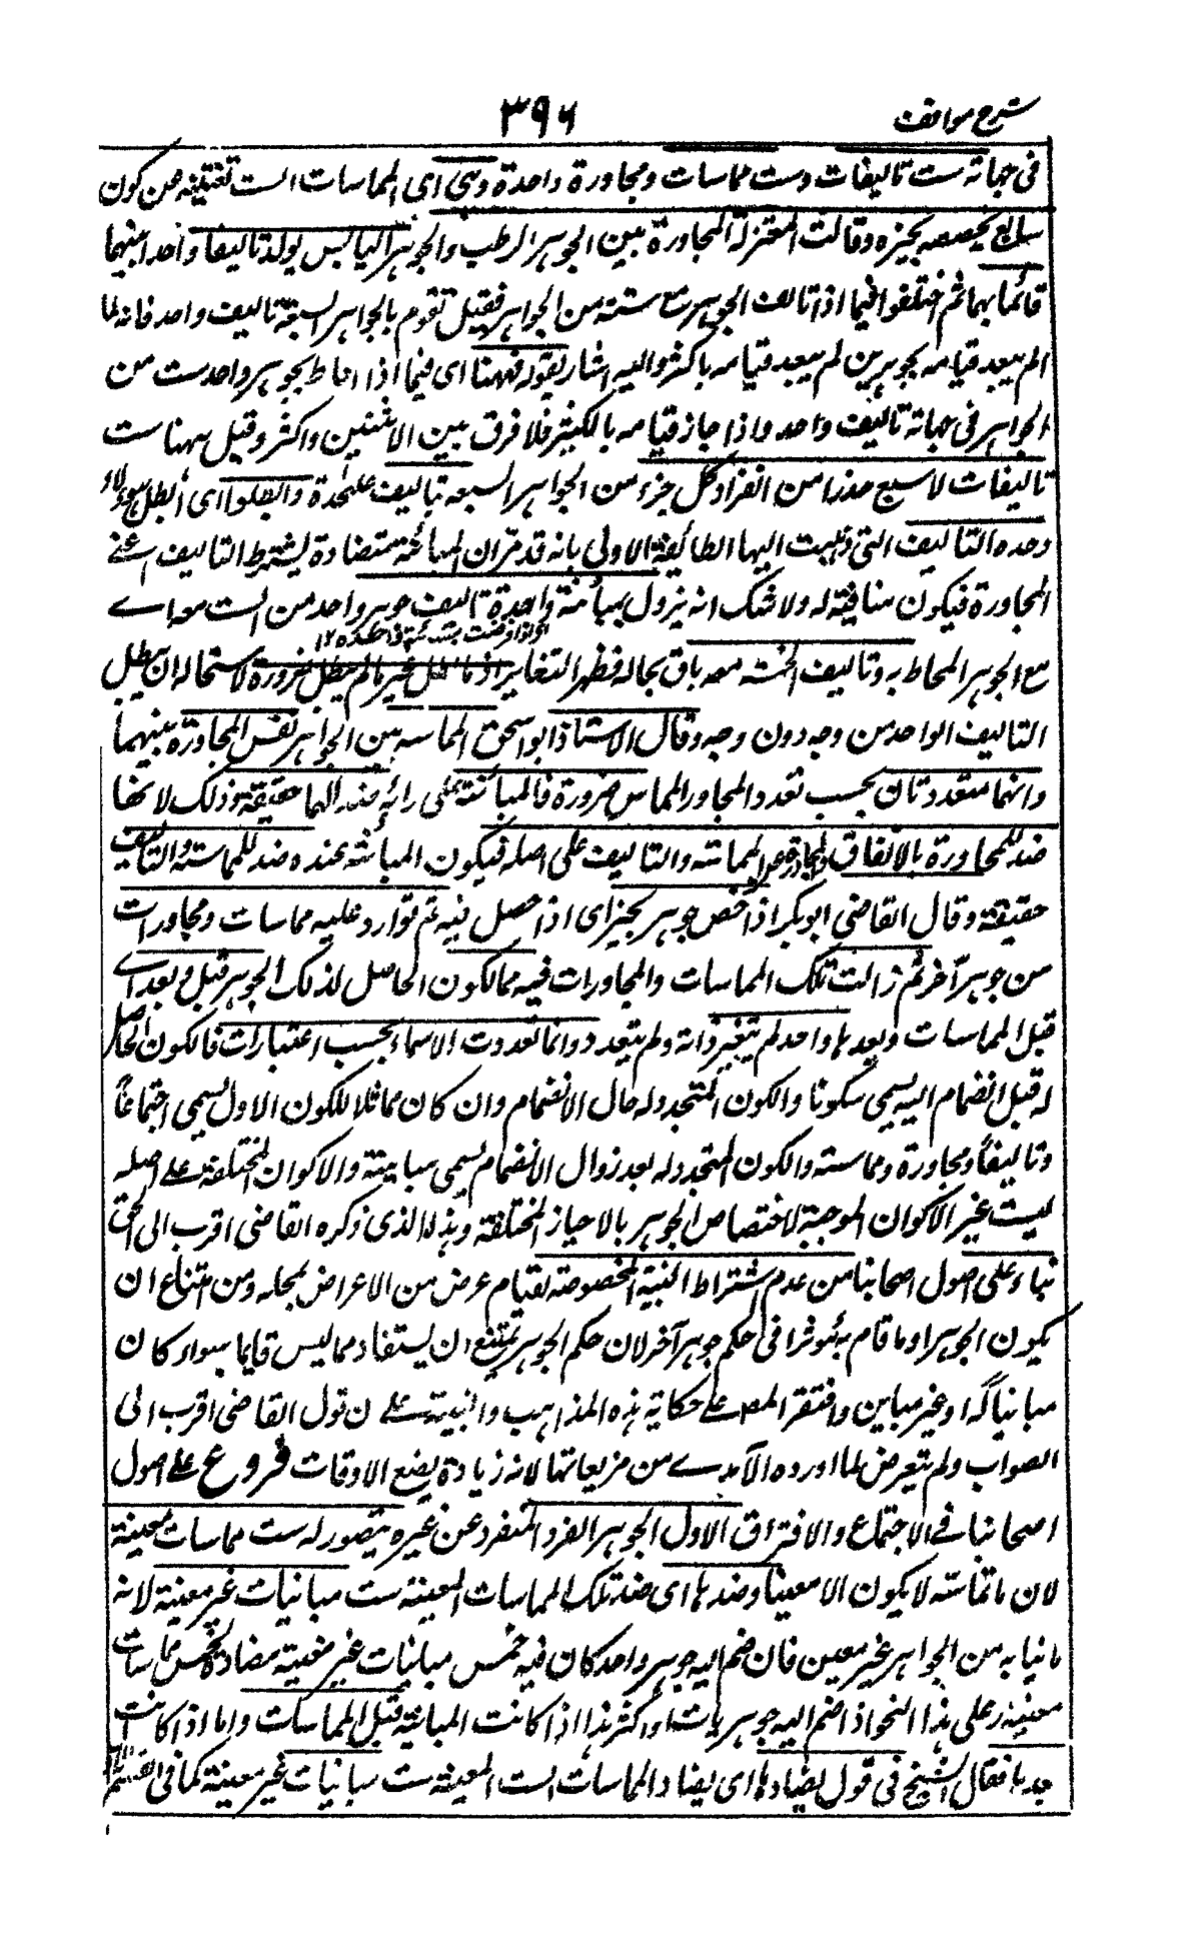 شرح مواقف
٣٩٦
فى جهاته ست تاليفات وست مماسات ومجاورة واحدة وهى اى المماسات الست تغنيه عن كون
سابع يخصصه بحيزه وقالت المعتزلة المجاورة بين الجوهر الرطب والجوهر اليابس يولد تاليفا واحدا بينهما
قائما بهما ثم اختلفوا فيما اذا تالف الجوهر مع ستة من الجواهر فقيل تقوم بالجواهر السبعة تاليف واحد فانه لما
لم يبعد قيامه بجوهرين لم يبعد قيامه باكثر واليه اشار بقوله فههنا اى فيما اذا احاط بجوهر واحد ست من
الجواهر فى جهاته تاليف واحد واذا جاز قيامه بالكثير فلا فرق بين الاثنين واكثر وقيل ههنا ست
تاليفات لا سبع حذرا من انفراد كل جزء من الجواهر السبعة بتاليف على حدة وابطلوا اى ابطل هؤلاء
وحدة التاليف التى ذهبت اليها الطائفة الاولى بانه قد مر ان المباينة متضادة لشرط التاليف اعنى
المجاورة فيكون منافية له ولا شك انه يزول بمباينة واحدة تاليف جوهر واحد من الست معه اى
مع الجوهر المحاط به وتاليف الخمسة معه باق بحاله فظهر التغاير اذ ما بطل غير ما لم يبطل ضرورة لاستحالة ان يبطل
التاليف الواحد من وجه دون وجه وقال الاستاذ ابو اسحق المماسة بين الجواهر نفس المجاورة بينهما
وانهما متعددتان بحسب تعدد المجاور والمماس ضرورة فالمباينة على رائه ضد لهما حقيقة وذلك لانها
ضد للمجاورة بالاتفاق والمجاورة عين المماسة والتاليف على اصله فيكون المباينة عنده ضد للمماسة والتاليف
حقيقة وقال القاضى ابو بكر اذا خص جوهر بحيز اى اذا حصل فيه ثم توارد عليه مماسات ومجاورات
من جوهر آخر ثم زالت تلك المماسات والمجاورات فيه فالكون الحاصل لذلك الجوهر قبل وبعد اى
قبل المماسات وبعدها واحد لم يتغير ذاته ولم يتعدد وانما تعددت الاسماء بحسب اعتبارات فالكون الحاصل
له قبل انضمام اليه يسمى سكونا والكون المتجدد له حال الانضمام وان كان مماثلا للكون الاول يسمى اجتماعا
وتاليفا ومجاورة ومماسة والكون المتجدد له بعد زوال الانضمام يسمى مباينة والاكوان المختلفة على اصله
ليست غير الاكوان الموجبة لاختصاص الجوهر بالاحياز المختلفة وهذا الذى ذكره القاضى اقرب الى الحق
بناء على اصول اصحابنا من عدم اشتراط البنية المخصوصة لقيام عرض من الاعراض بمحله ومن امتناع ان
يكون الجوهر او ما قام به مؤثرا فى حكم جوهر آخر لان حكم الجوهر يمتنع ان يستفاد مما ليس قايما به سواء كان
مبائنا له او غير مباين واقتصر المصـ على حكاية هذه المذاهب والتنبيه على ان قول القاضى اقرب الى
الصواب ولم يتعرض لما اورده الآمدى من تزييفاتها لانه زيادة يضيع الاوقات فروع على اصول
اصحابنا فى الاجتماع والافتراق الاول الجوهر الفرد المنفرد عن غيره يتصور له ست مماسات معينة
لان ما تماسه لا يكون الا معينا وضدها اى ضد تلك المماسات المعينة ست مباينات غير معينة لانه
ما يباينه من الجواهر غير معين فان ضم اليه جوهر واحد كان فيه خمس مباينات غير معينة مضادة لخمس مماسات
معينة وعلى هذا النحو اذا ضم اليه جوهر ثالث او اكثر هذا اذا كانت المباينة قبل المماسات واما اذا كانت
بعدها فقال الشيخ فى قول يضادها اى يضاد المماسات الست المعينة ست مباينات غير معينة كما فى القسم